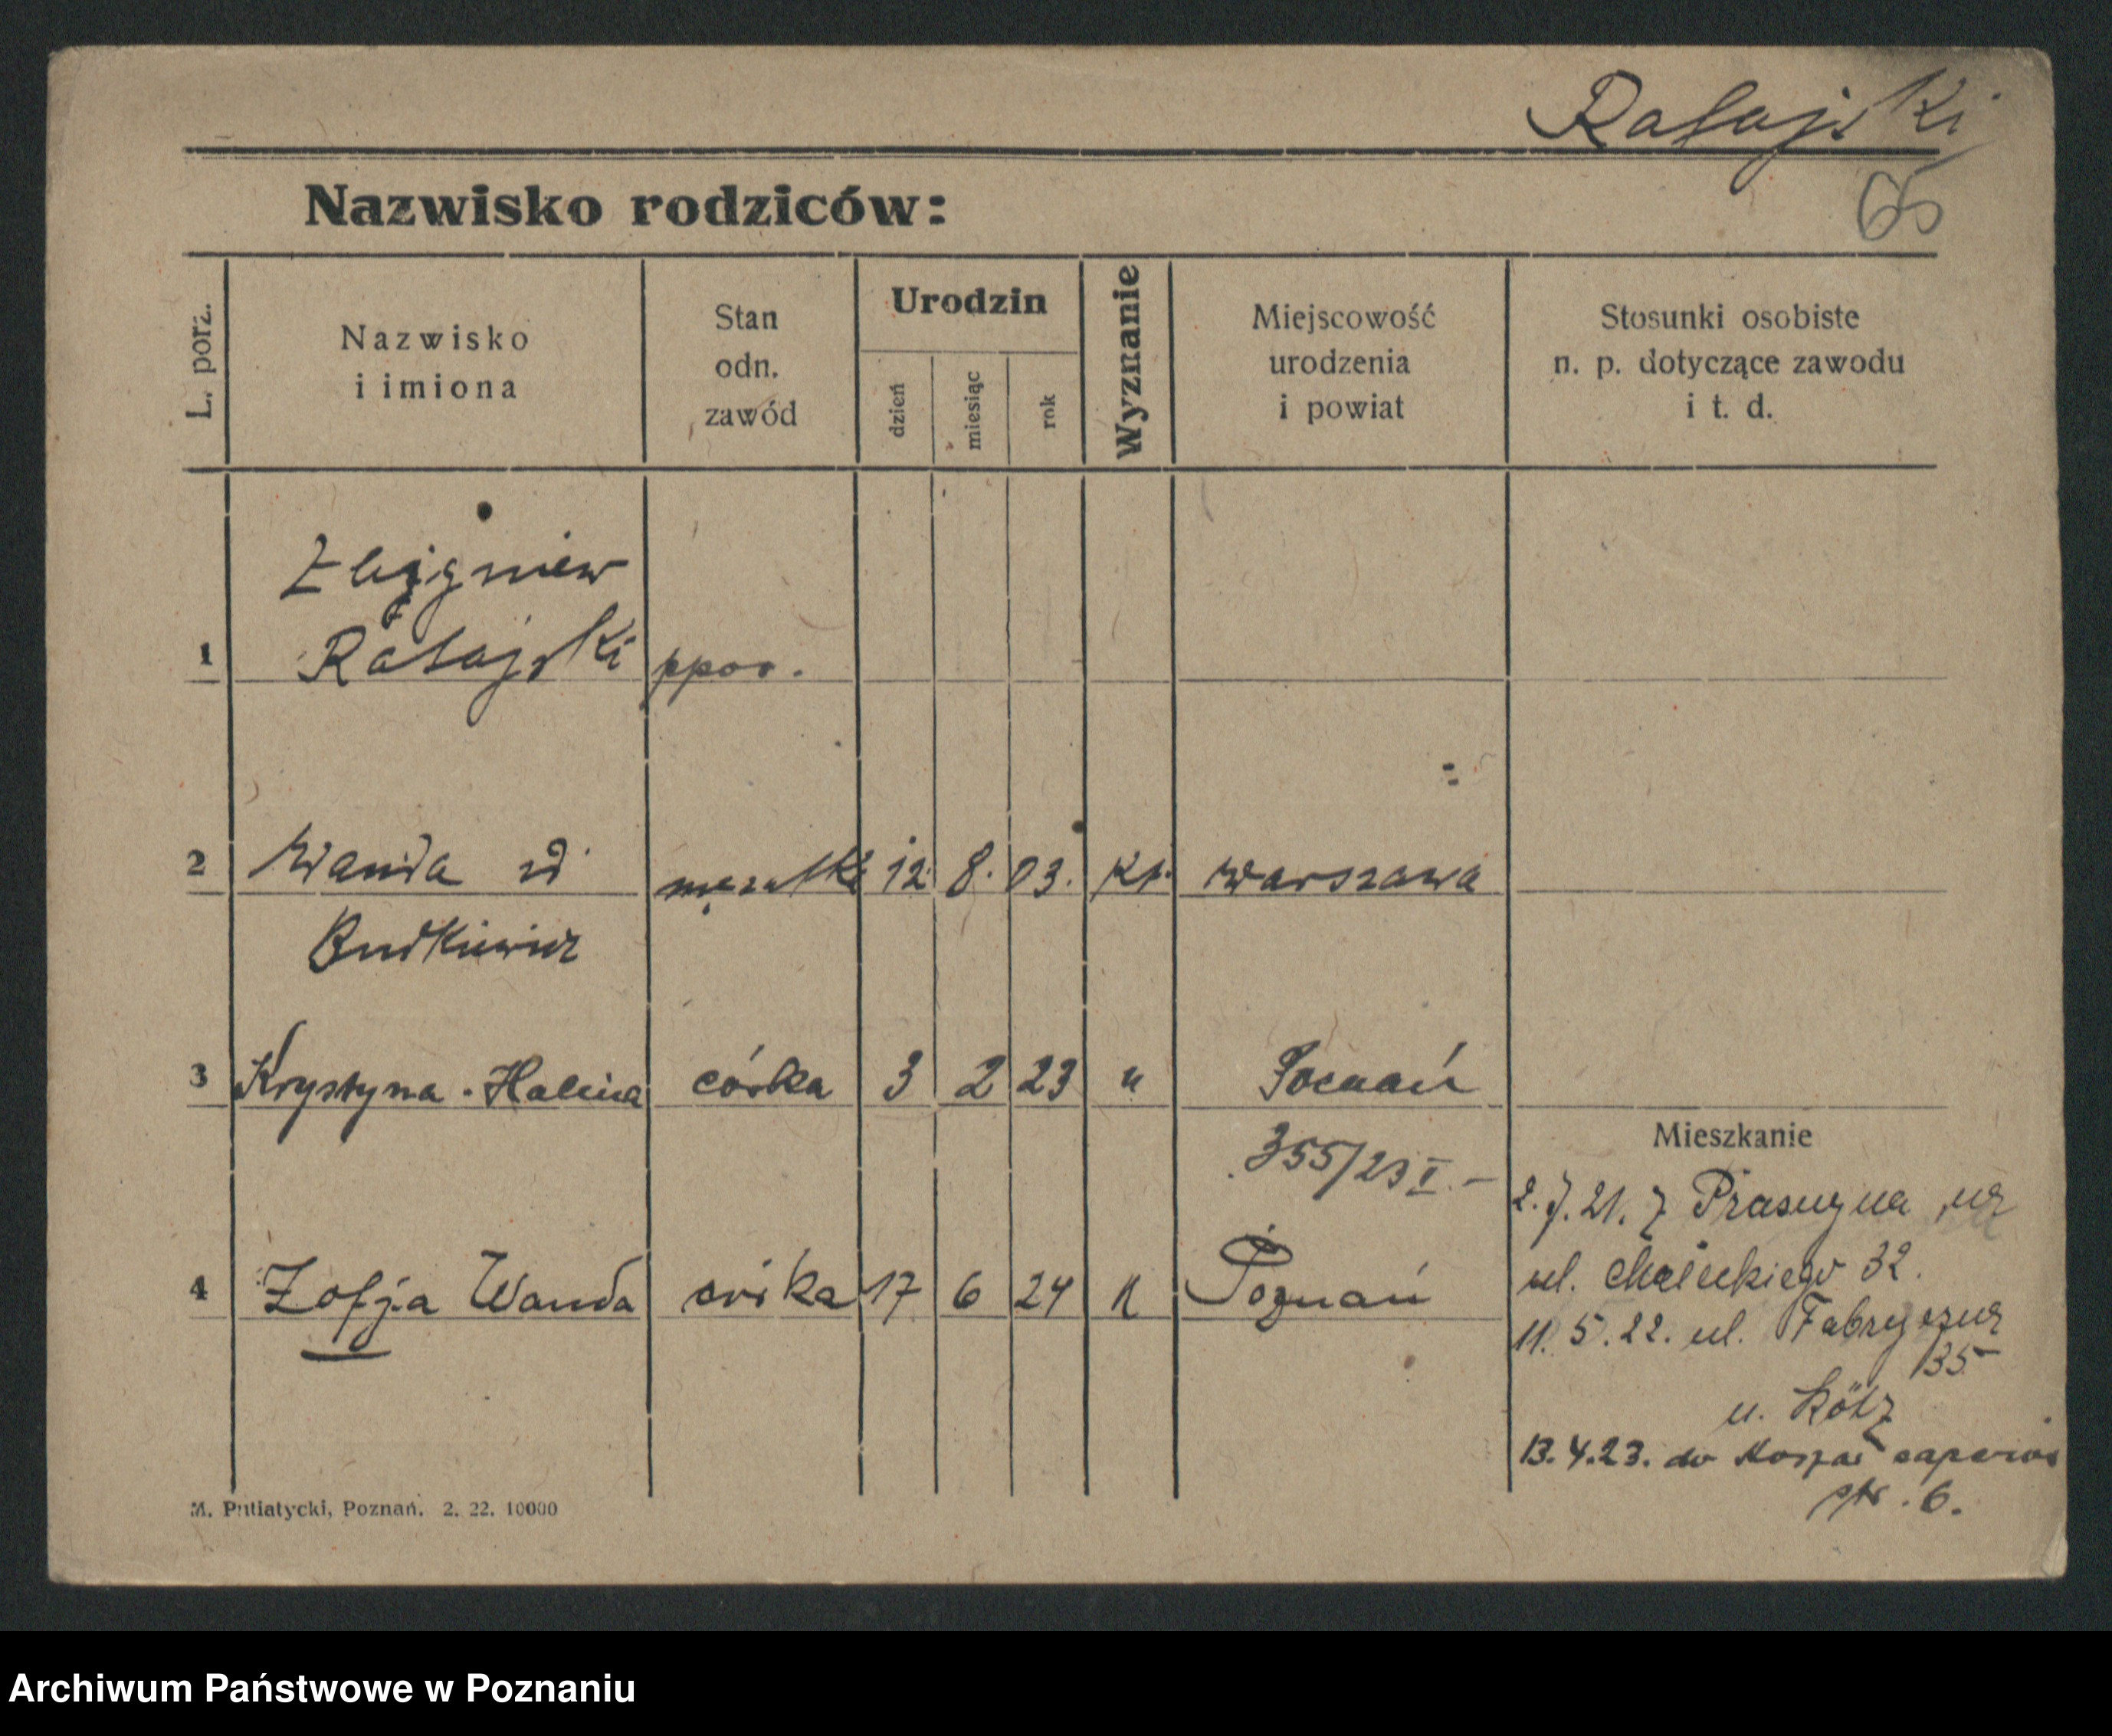 Ratajski
65
Nazwisko rodziców:
L. porz.
Nazwisko
i imiona
Stan
odn.
zawód
Urodzin
dzień
miesiąc
rok
Wyznanie
Miejscowość
urodzenia
i powiat
Stosunki osobiste
n. p. dotyczące zawodu
i t. d.
Zbigniew
1 Ratajski ppor.
2 Wanda zd mężatka 12 8. 03. kt. Warszawa
Budkiewicz
3 Krystyna - Halina córka 3 2 23 " Poznań
355/23 I. -
4 Zofja Wanda córka 17 6 24 " Poznań
Mieszkanie
2. 7. 21. z
ul. 32.
11. 5. 22. ul. Fabryczna
35
u. Kötz
13.4.23. do Koszar saperów
str. 6.
M. Putiatycki, Poznań. 2. 22. 10000
Archiwum Państwowe w Poznaniu